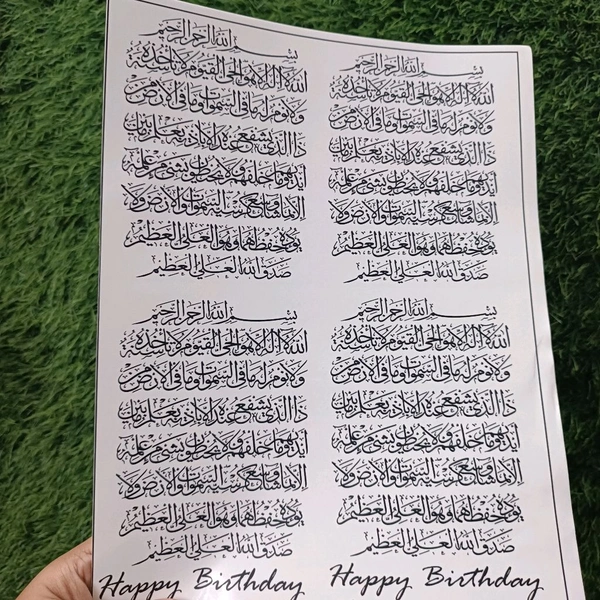 بسم الله الرحمن الرحيم
الله لا إله إلا هو الحي القيوم لا تأخذه سنة
ولا نوم له ما في السموات وما في الأرض من
ذا الذي يشفع عنده إلا بإذنه يعلم ما بين
أيديهم وما خلفهم ولا يحيطون بشيء من علمه
إلا بما شاء وسع كرسيه السموات والأرض ولا
يؤده حفظهما وهو العلي العظيم
صدق الله العلي العظيم
بسم الله الرحمن الرحيم
الله لا إله إلا هو الحي القيوم لا تأخذه سنة
ولا نوم له ما في السموات وما في الأرض من
ذا الذي يشفع عنده إلا بإذنه يعلم ما بين
أيديهم وما خلفهم ولا يحيطون بشيء من علمه
إلا بما شاء وسع كرسيه السموات والأرض ولا
يؤده حفظهما وهو العلي العظيم
صدق الله العلي العظيم
بسم الله الرحمن الرحيم
الله لا إله إلا هو الحي القيوم لا تأخذه سنة
ولا نوم له ما في السموات وما في الأرض من
ذا الذي يشفع عنده إلا بإذنه يعلم ما بين
أيديهم وما خلفهم ولا يحيطون بشيء من علمه
إلا بما شاء وسع كرسيه السموات والأرض ولا
يؤده حفظهما وهو العلي العظيم
صدق الله العلي العظيم
بسم الله الرحمن الرحيم
الله لا إله إلا هو الحي القيوم لا تأخذه سنة
ولا نوم له ما في السموات وما في الأرض من
ذا الذي يشفع عنده إلا بإذنه يعلم ما بين
أيديهم وما خلفهم ولا يحيطون بشيء من علمه
إلا بما شاء وسع كرسيه السموات والأرض ولا
يؤده حفظهما وهو العلي العظيم
صدق الله العلي العظيم
Happy Birthday
Happy Birthday